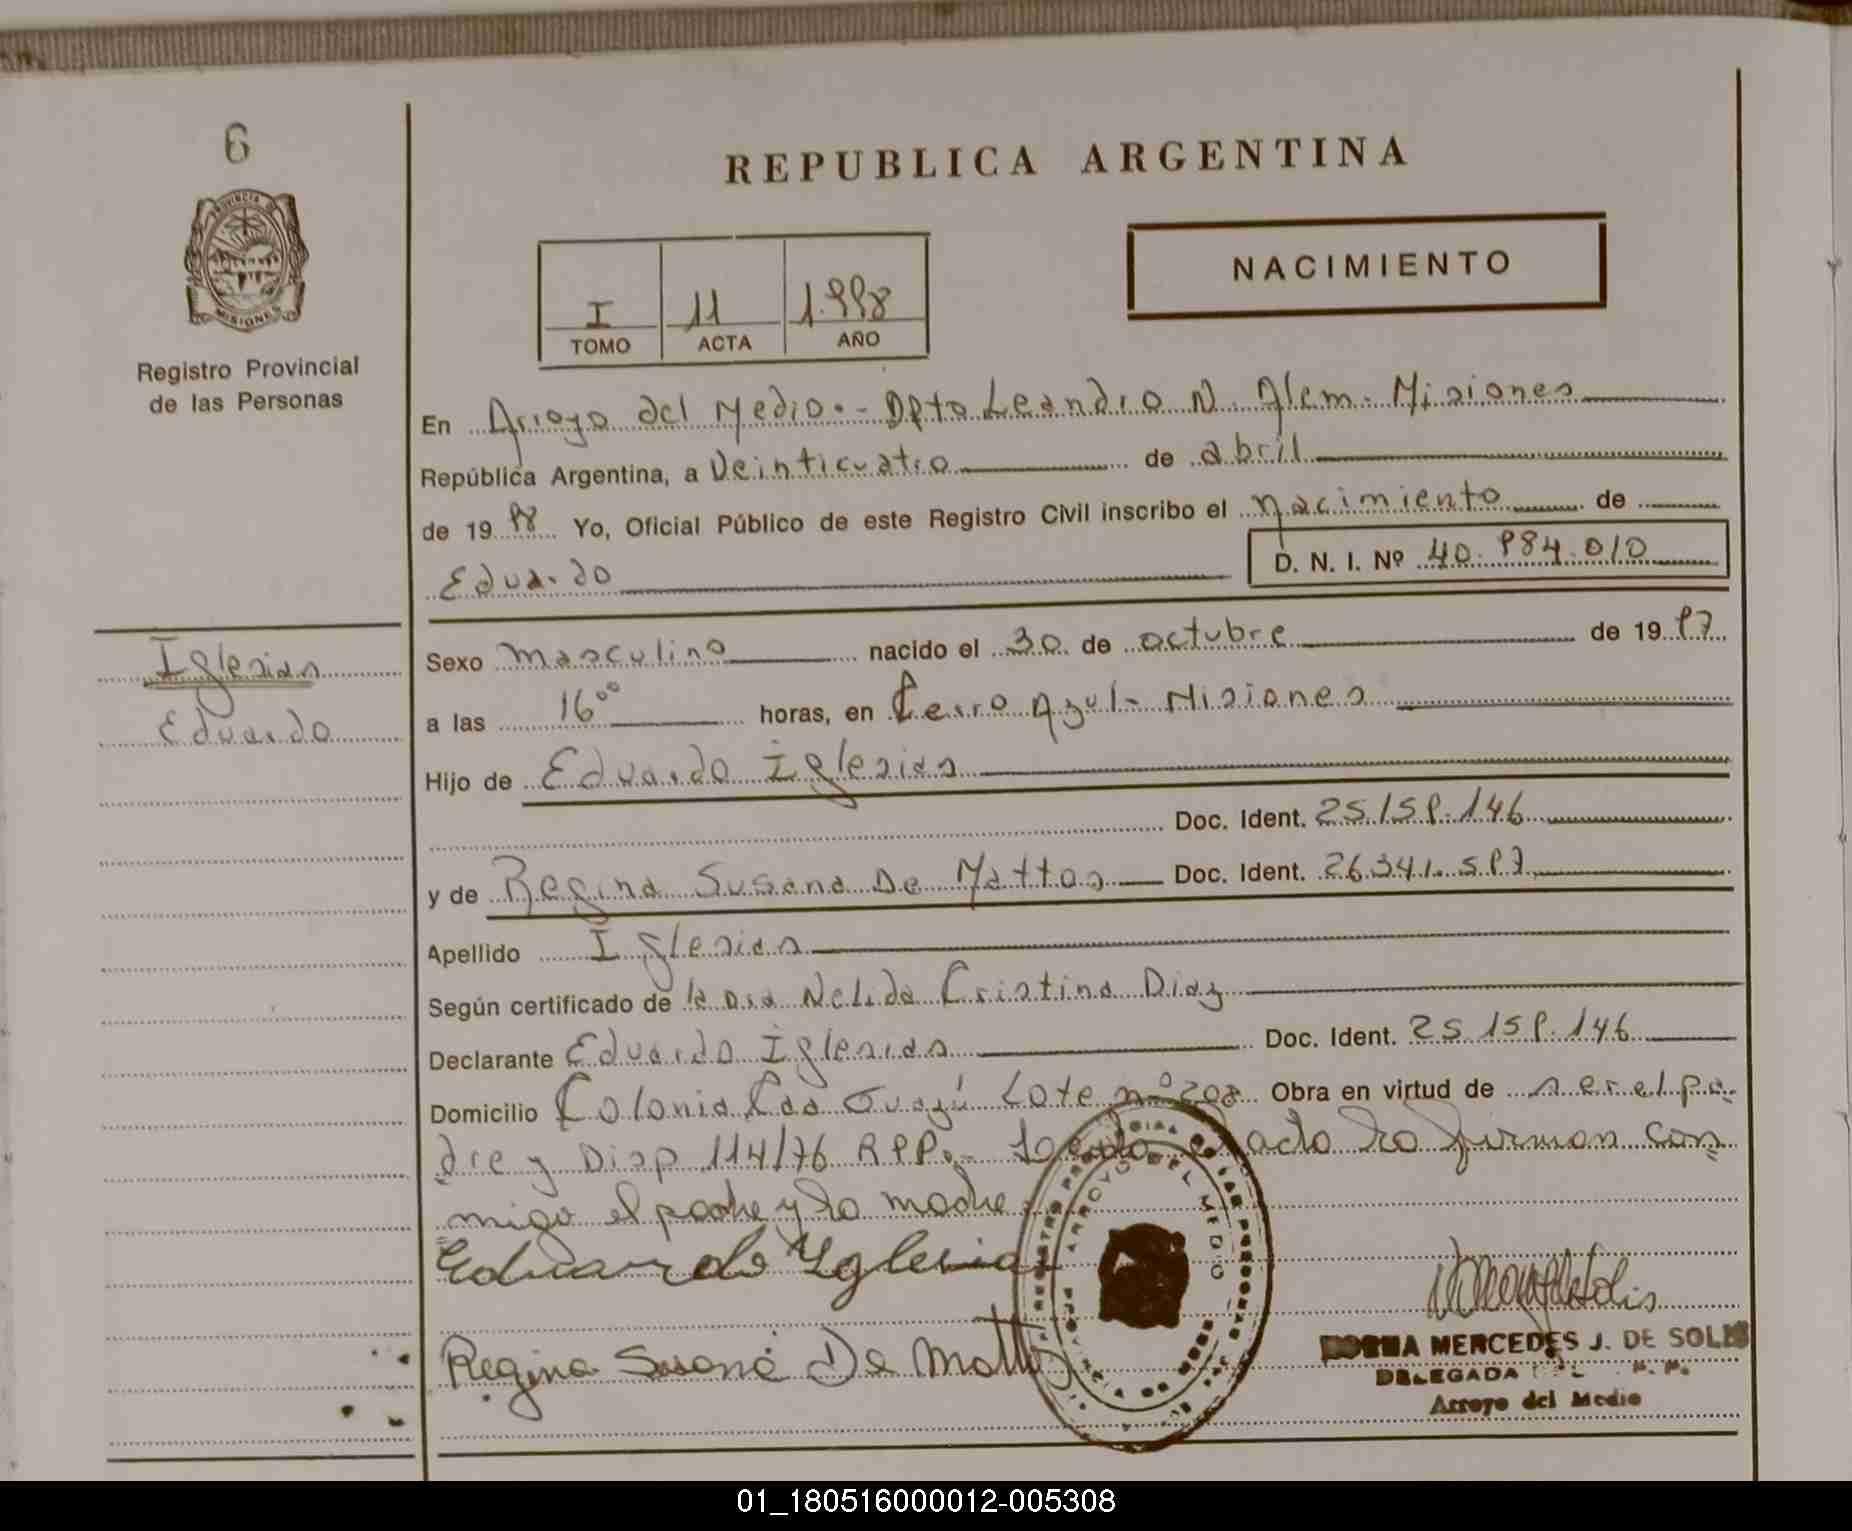 6
PROVINCIA DE
MISIONES
Registro Provincial
de las Personas
Iglesias
Eduardo
REPUBLICA ARGENTINA
NACIMIENTO
I 11 1.998
TOMO ACTA AÑO
En Arroyo del Medio.- Dpto Leandro N. Alem. Misiones
República Argentina, a Veinticuatro de abril
de 19 98 Yo, Oficial Público de este Registro Civil inscribo el nacimiento de
Eduardo D. N. I. Nº 40.984.010
Sexo masculino nacido el 30 de octubre de 19 97
a las 16⁰⁰ horas, en Cerro Azul - Misiones
Hijo de Eduardo Iglesias
Doc. Ident. 25.159.146
y de Regina Susana De Mattos Doc. Ident. 26.341.597
Apellido Iglesias
Según certificado de la Dra Nelida Cristina Diaz
Declarante Eduardo Iglesias Doc. Ident. 25.159.146
Domicilio Colonia Caa Guazú Lote nº 208 Obra en virtud de ser el pa=
dre y Disp 114/76 RPP.- Leida el acta la firman con=
migo el padre y la madre
Eduardo Yglesias
Regina Susana De Mattos
ARROYO DEL MEDIO
NORMA MERCEDES J. DE SOLIS
DELEGADA
Arroyo del Medio
01_180516000012-005308